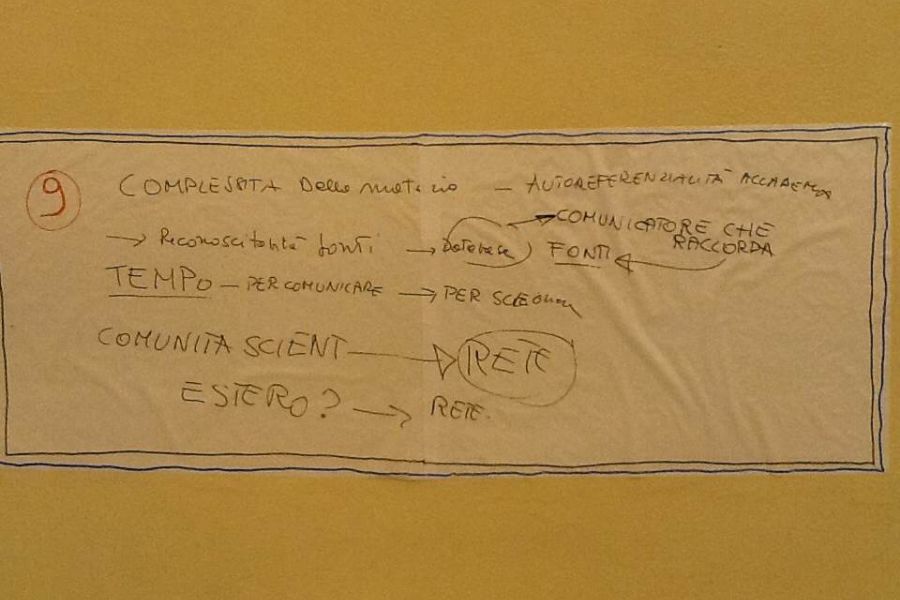 9
COMPLESSITÀ Della materia — AUTOREFERENZIALITÀ ACCADEMIA
→ COMUNICATORE CHE RACCORDA
→ Riconoscibilità fonti → Database FONTI
TEMPO — PER COMUNICARE → PER SCEGLIERE
COMUNITÀ SCIENT → RETE
ESTERO? → RETE.